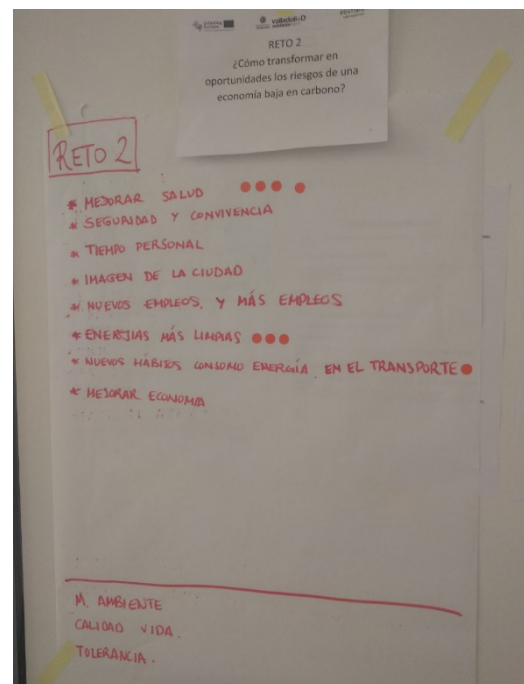 RETO 2
¿Cómo transformar en
oportunidades los riesgos de una
economía baja en carbono?
RETO 2
* MEJORAR SALUD
* SEGURIDAD Y CONVIVENCIA
* TIEMPO PERSONAL
* IMAGEN DE LA CIUDAD
* NUEVOS EMPLEOS, Y MÁS EMPLEOS
* ENERGIAS MÁS LIMPIAS
* NUEVOS HÁBITOS CONSUMO ENERGÍA EN EL TRANSPORTE
* MEJORAR ECONOMIA
M. AMBIENTE
CALIDAD VIDA.
TOLERANCIA.